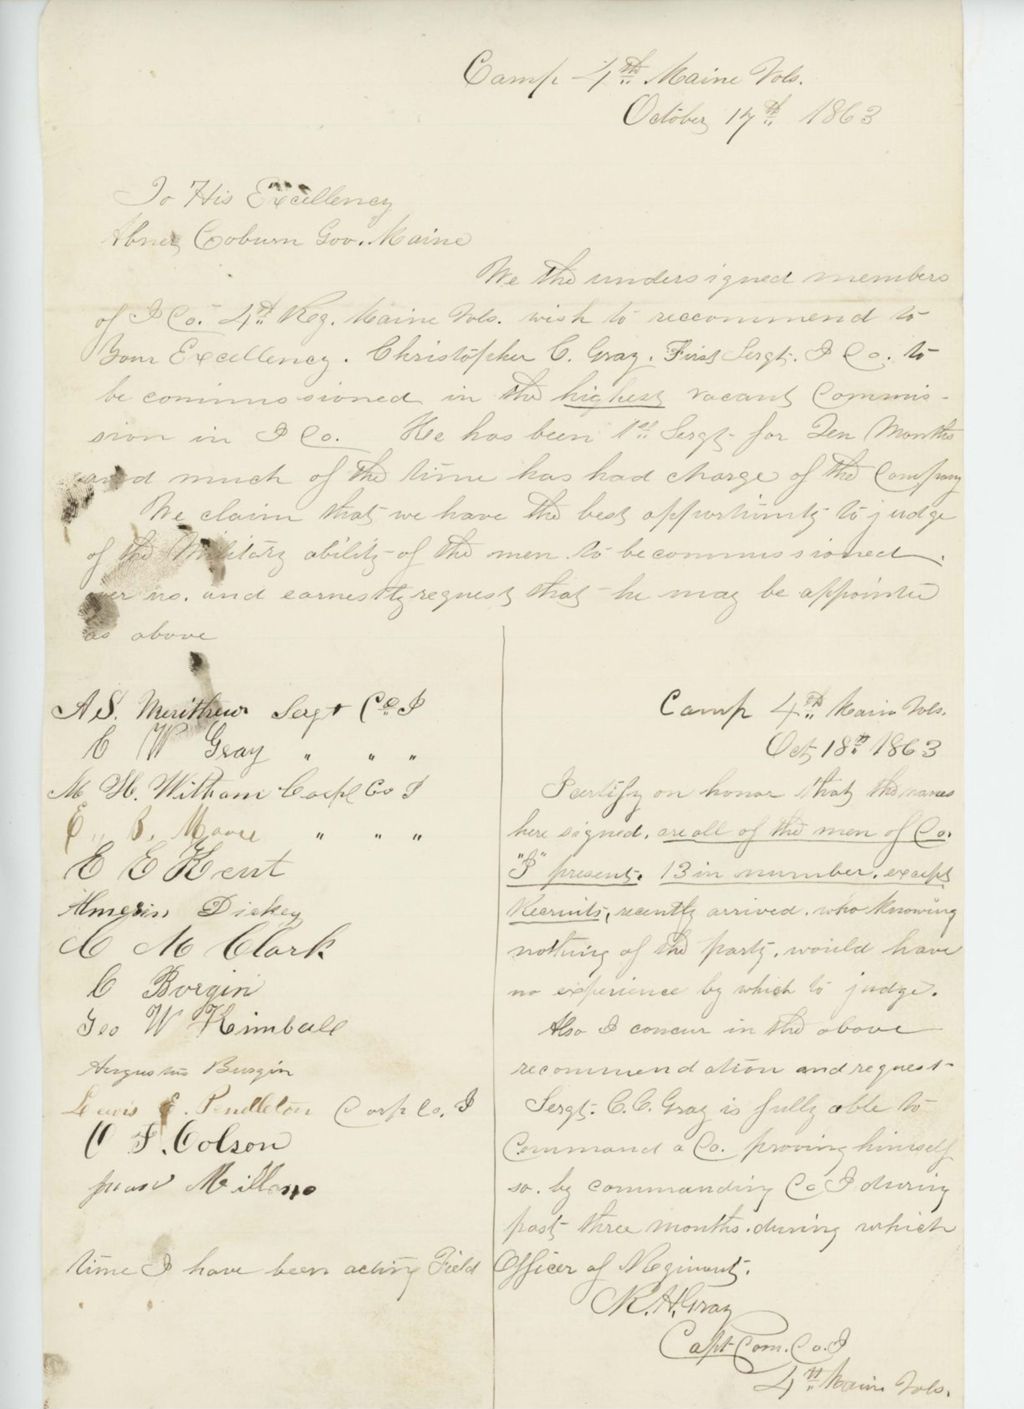 Camp 4th Maine Vols.
October 17th 1863
To His Excellency
Abner Coburn Gov. Maine
We the undersigned members
of I Co. 4th Reg. Maine Vols. wish to reccommend to
Your Excellency. Christopher C. Gray. First Sergt. I Co. to
be commissioned in the highest vacant Commis-
sion in I Co. He has been 1st Sergt. for Ten Months
and much of the time has had charge of the Company
We claim that we have the best opportunity to judge
of the Military ability of the men to be commissioned
over us. and earnestly request that he may be appointed
as above
A S. Merithew Sergt Co I
C W Gray " " "
M H. Witham Corpl Co I
E. B. Moore " " "
E E Kent
Almerin Dickey
C M Clark
C Burgin
Geo W Kimball
Augustus Burgin
Lewis E. Pendleton Corp Co. I
O F. Colson
Millano
Camp 4th Maine Vols.
Oct 18th 1863
I certify on honor that the names
here signed, are all of the men of Co.
"I" present. 13 in number. except
Recruits, recently arrived. who knowing
nothing of the party, would have
no experience by which to judge.
Also I concur in the above
recommendation and request
Sergt. C. C. Gray is fully able to
Command a Co. proving himself
so. by commanding Co I during
past three months. during which
time I have been acting Field Officer of Regiment.
R. H. Gray
Capt Com. Co. I
4th Maine Vols.